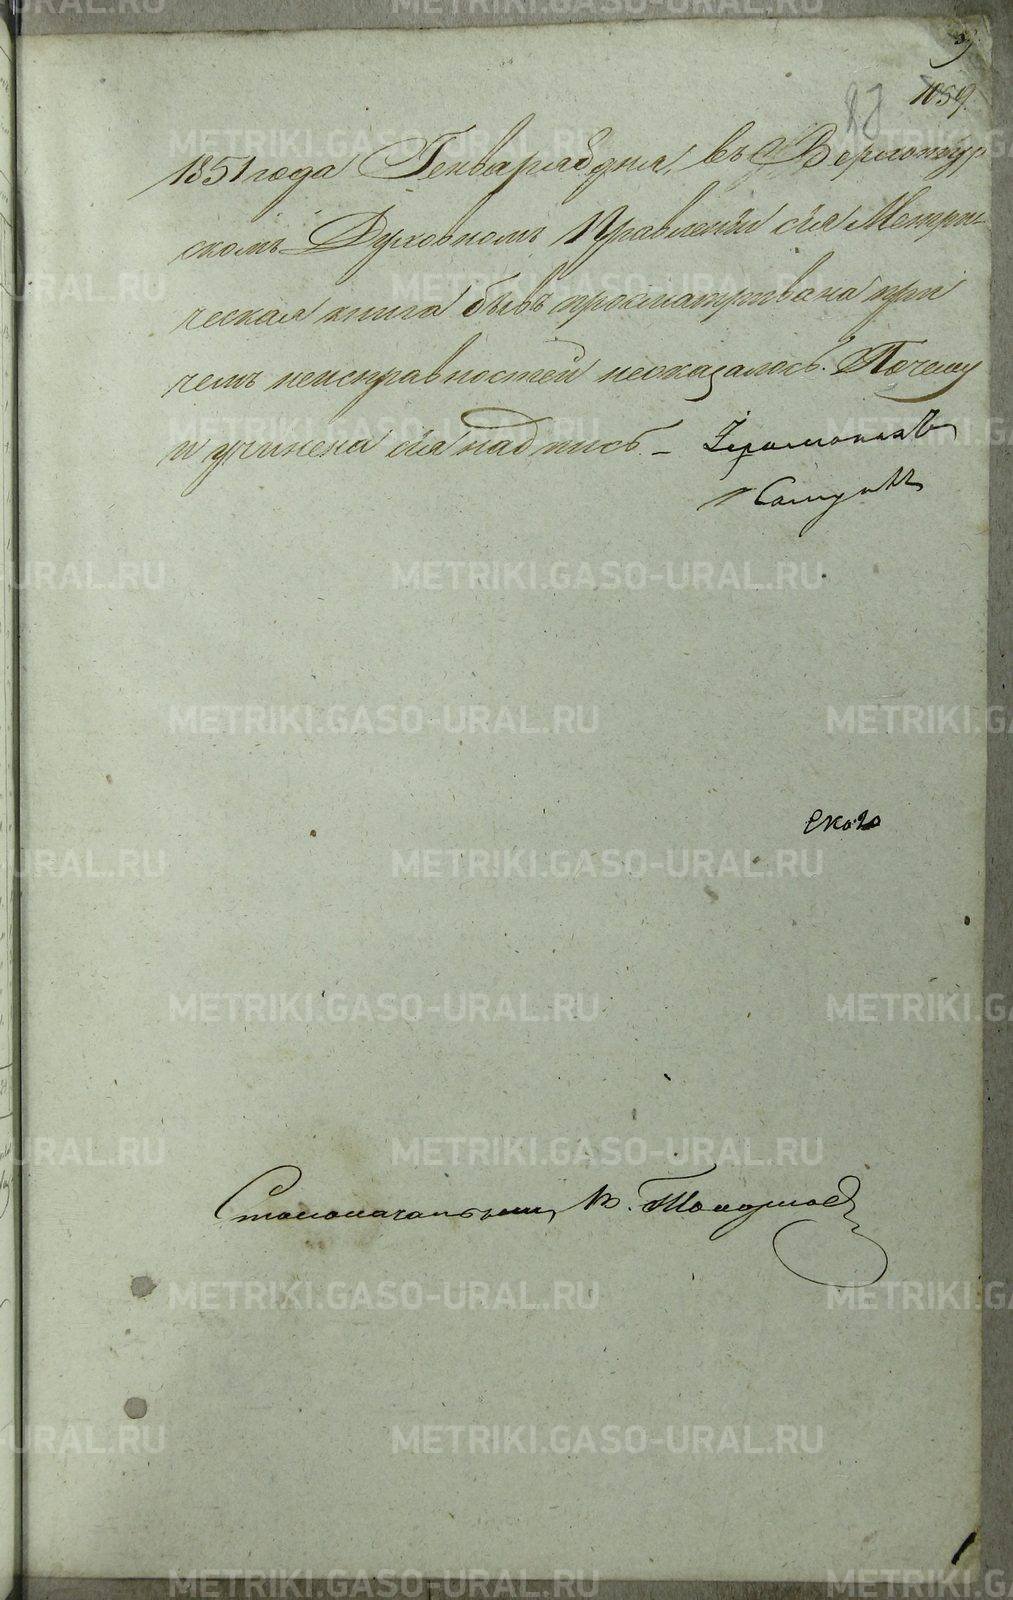 1059.
1851 года Генваря дня, въ Верхотур
скомъ Духовномъ Правленіи сія Метри-
ческая книга бывъ просматривана при
чемъ неисправностей неоказалось. Почему
и учинена сія надпись. – Іеромонахъ
ского
Столоначальникъ
METRIKI.GASO-URAL.RU